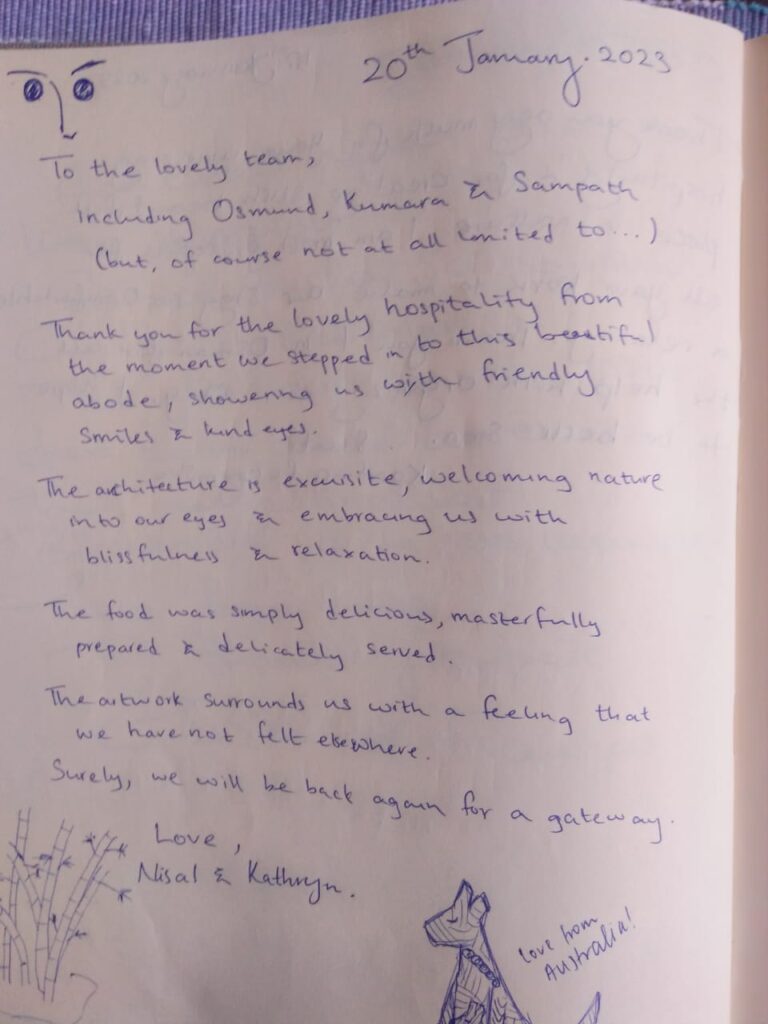 20th January. 2023
To the lovely team,
including Osmund, Kumara & Sampath
(but, of course not at all limited to...)
Thank you for the lovely hospitality from
the moment we stepped in to this beautiful
abode, showering us with friendly
smiles & kind eyes.
The architecture is excuisite, welcoming nature
into our eyes & embracing us with
blissfulness & relaxation.
The food was simply delicious, masterfully
prepared & delicately served.
The artwork surrounds us with a feeling that
we have not felt elsewhere.
Surely, we will be back again for a gateway.
Love,
Nisal & Kathryn.
Love from
Australia!